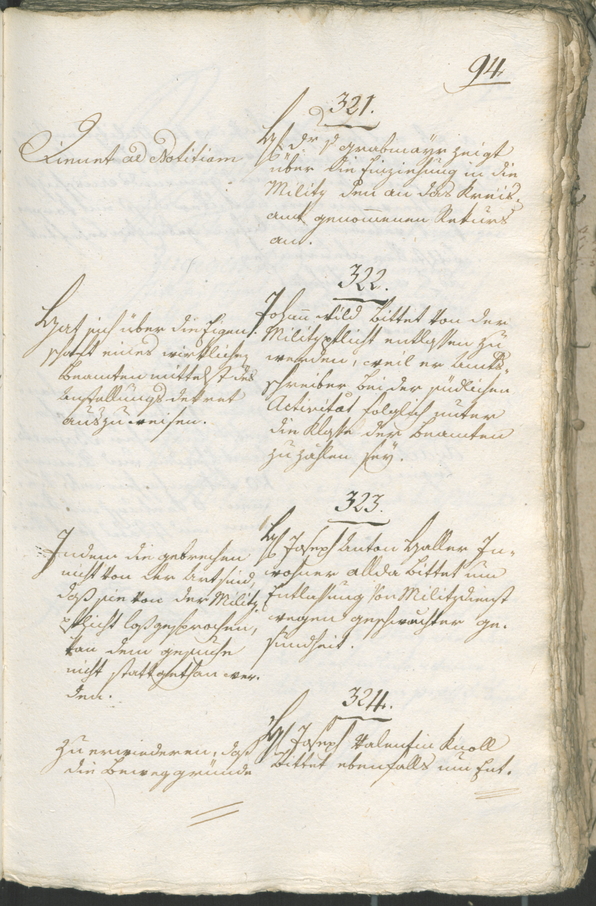 94.
321.
Dienet ad Notitiam
H. Dr. v. Grabmayr zeigt
über die Einziehung in die
Militz den an das Kreis-
amt genommenen Rekurs
an.
322.
Hat sich über die Eigen-
schaft eines wirklichen
Beamten mittelst des
Anstellungsdekret
auszuweisen.
Johann Wild bittet von der
Militzpflicht entlassen zu
werden, weil er Amts-
schreiber bei der
Activität folglich unter
die Klasse der Beamten
zu zählen sey.
323.
Indem die Gebrechen
nicht von der Art sind,
daß sie von der Militz-
pflicht losgesprochen,
kan dem Gesuche
nicht stattgethan wer-
den.
H. Joseph Anton Haller In-
wohner allda bittet um
Entlassung von Militzdienst
wegen geschwächter Ge-
sundheit.
324.
Zu erwiedern, daß
die Beweggründe
H. Joseph Valentin Knoll
bittet ebenfalls um Ent-